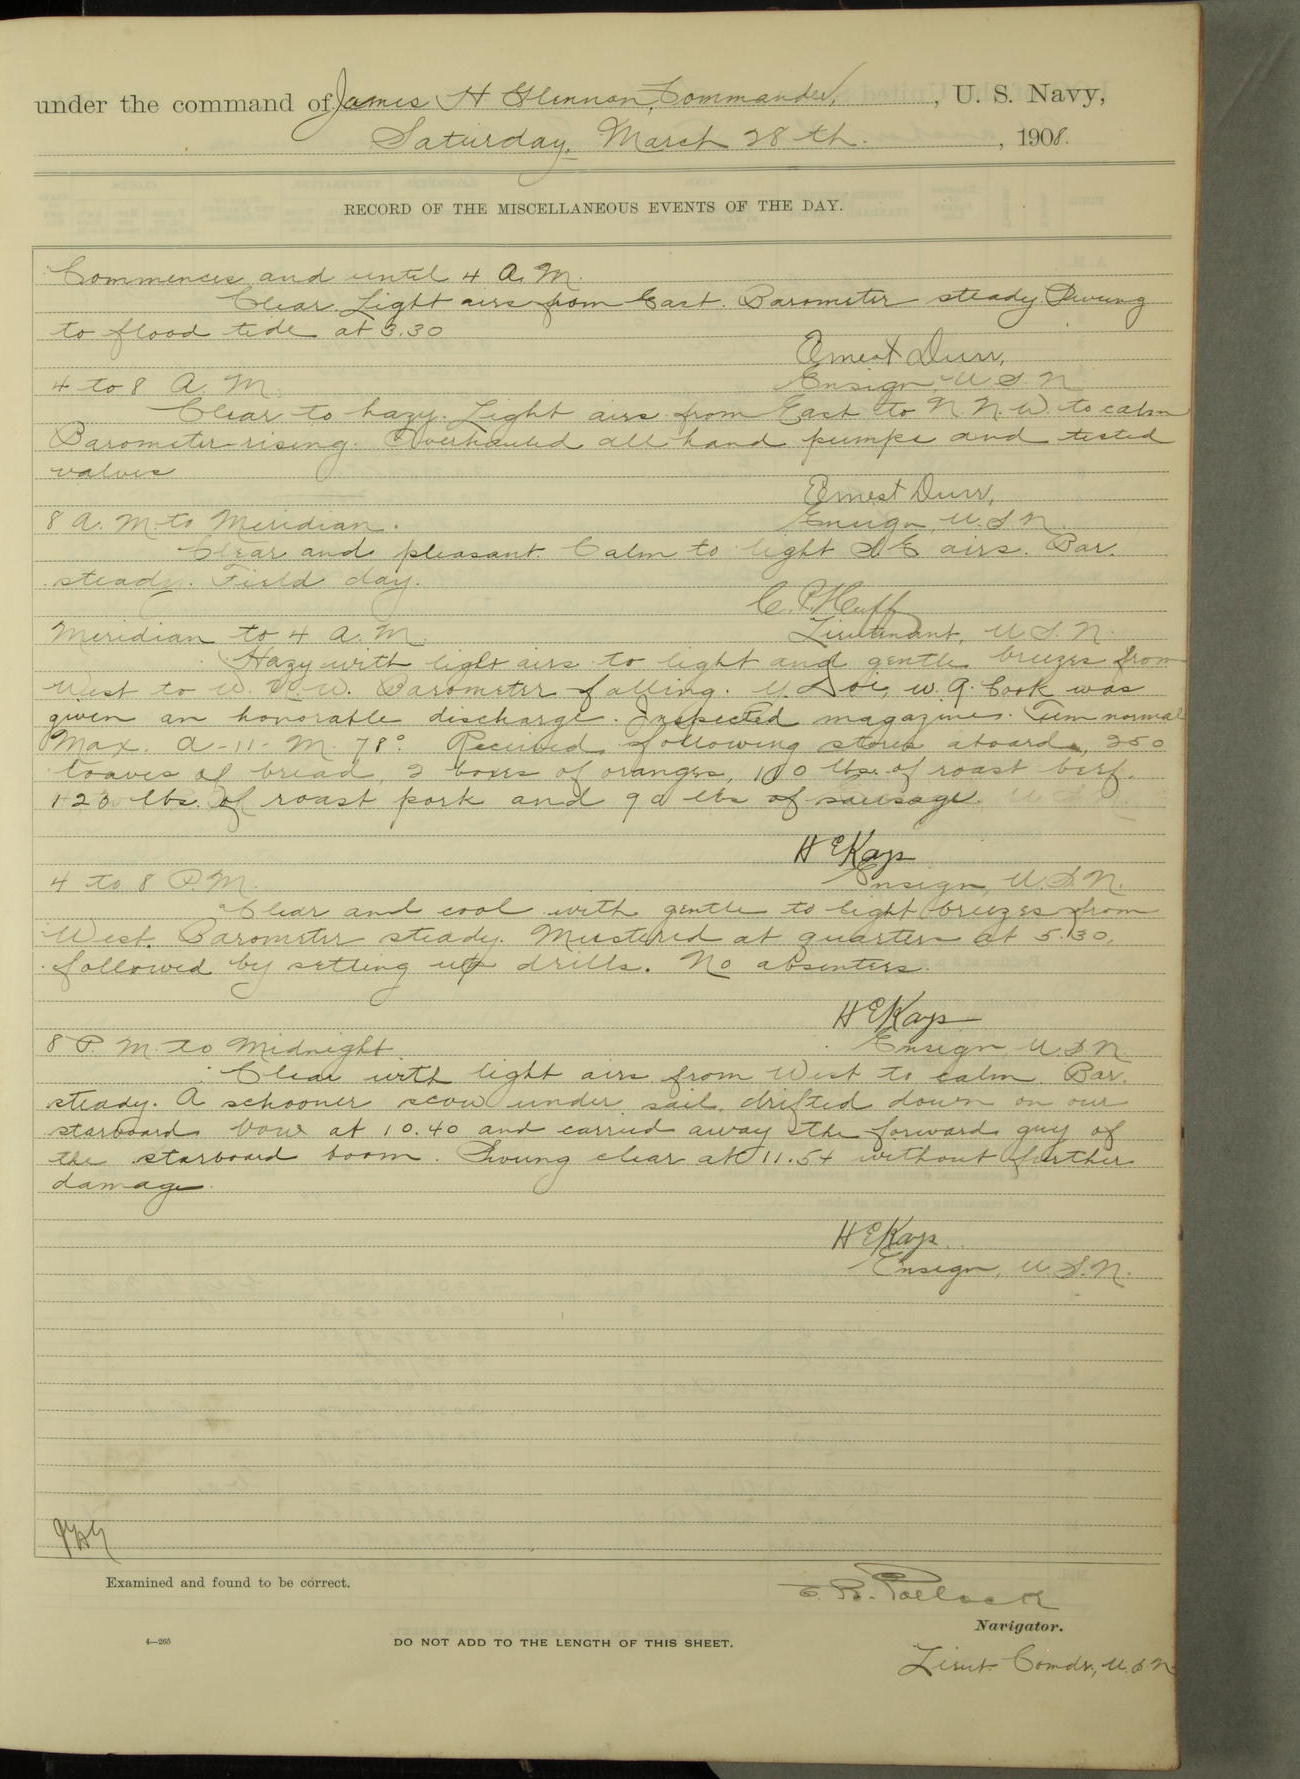 under the command of James H Glennon, Commander, , U. S. Navy,
Saturday, March 28th. , 1908.
RECORD OF THE MISCELLANEOUS EVENTS OF THE DAY.
Commences and until 4 A. M.
Clear. Light airs from East. Barometer steady. Swung
to flood tide at 3.30
Ernest Durr,
4 to 8 A. M. Ensign, U. S. N.
Clear to hazy. Light airs from East to N N. W. to calm
Barometer rising. Overhauled all hand pumps and tested
valves
Ernest Durr,
8 A. M. to Meridian. Ensign, U. S. N.
Clear and pleasant. Calm to light S E airs. Bar.
steady. Field day.
C. P. Huff
Meridian to 4 A. M. Lieutenant, U. S. N.
Hazy with light airs to light and gentle breezes from
West to W. W. Barometer falling. W. A. Cook was
given an honorable discharge. Inspected magazines. Tem normal
Max. A-11-M. 78° Received following stores aboard, 250
loaves of bread, 2 boxes of oranges, 110 lbs. of roast beef,
120 lbs. of roast pork and 90 lbs of sausage.
H E Kays
4 to 8 P. M. Ensign, U. S. N.
Clear and cool with gentle to light breezes from
West. Barometer steady. Mustered at quarters at 5.30,
followed by setting up drills. No absentees.
H E Kays
8 P. M. to Midnight. Ensign, U. S. N.
Clear with light airs from West to calm. Bar.
steady. A schooner scow under sail, drifted down on our
starboard bow at 10.40 and carried away the forward guy of
the starboard boom. Swung clear at 11.54 without further
damage.
H E Kays.
Ensign, U. S. N.
JHG
Examined and found to be correct.
E. R. Pollock
Navigator.
4—265
DO NOT ADD TO THE LENGTH OF THIS SHEET.
Lieut Comdr, U. S. N.